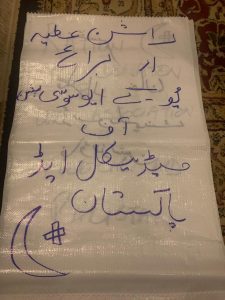 راشن عطیہ
از براغ
یو کے ایسوسی ایشن
آف
میڈیکل ایڈ
پاکستان